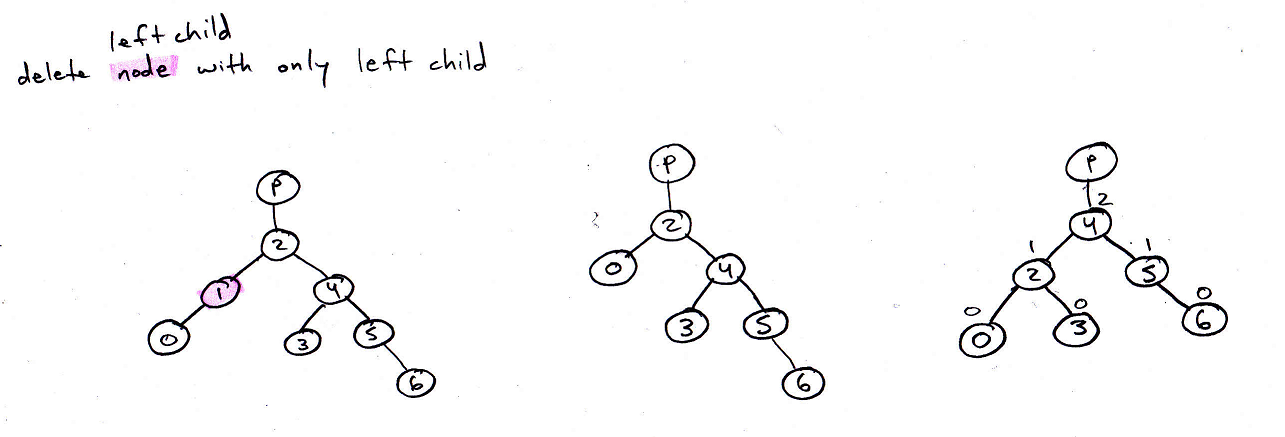 left child
delete node with only left child
P
2
1
4
0
3
5
6
P
2
0
4
3
5
6
P
2
4
1
2
1
5
0
0
0
3
0
6